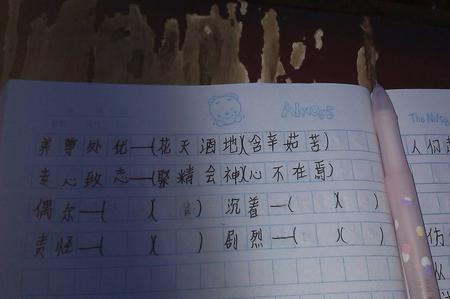 Always
The Nifty
养尊处优—(花天酒地)(含辛茹苦)
专心致志—(聚精会神)(心不在焉)
偶尔—(      )(      )  沉着—(      )(      )
责怪—(      )(      )  剧烈—(      )(      )
人们
伤
从